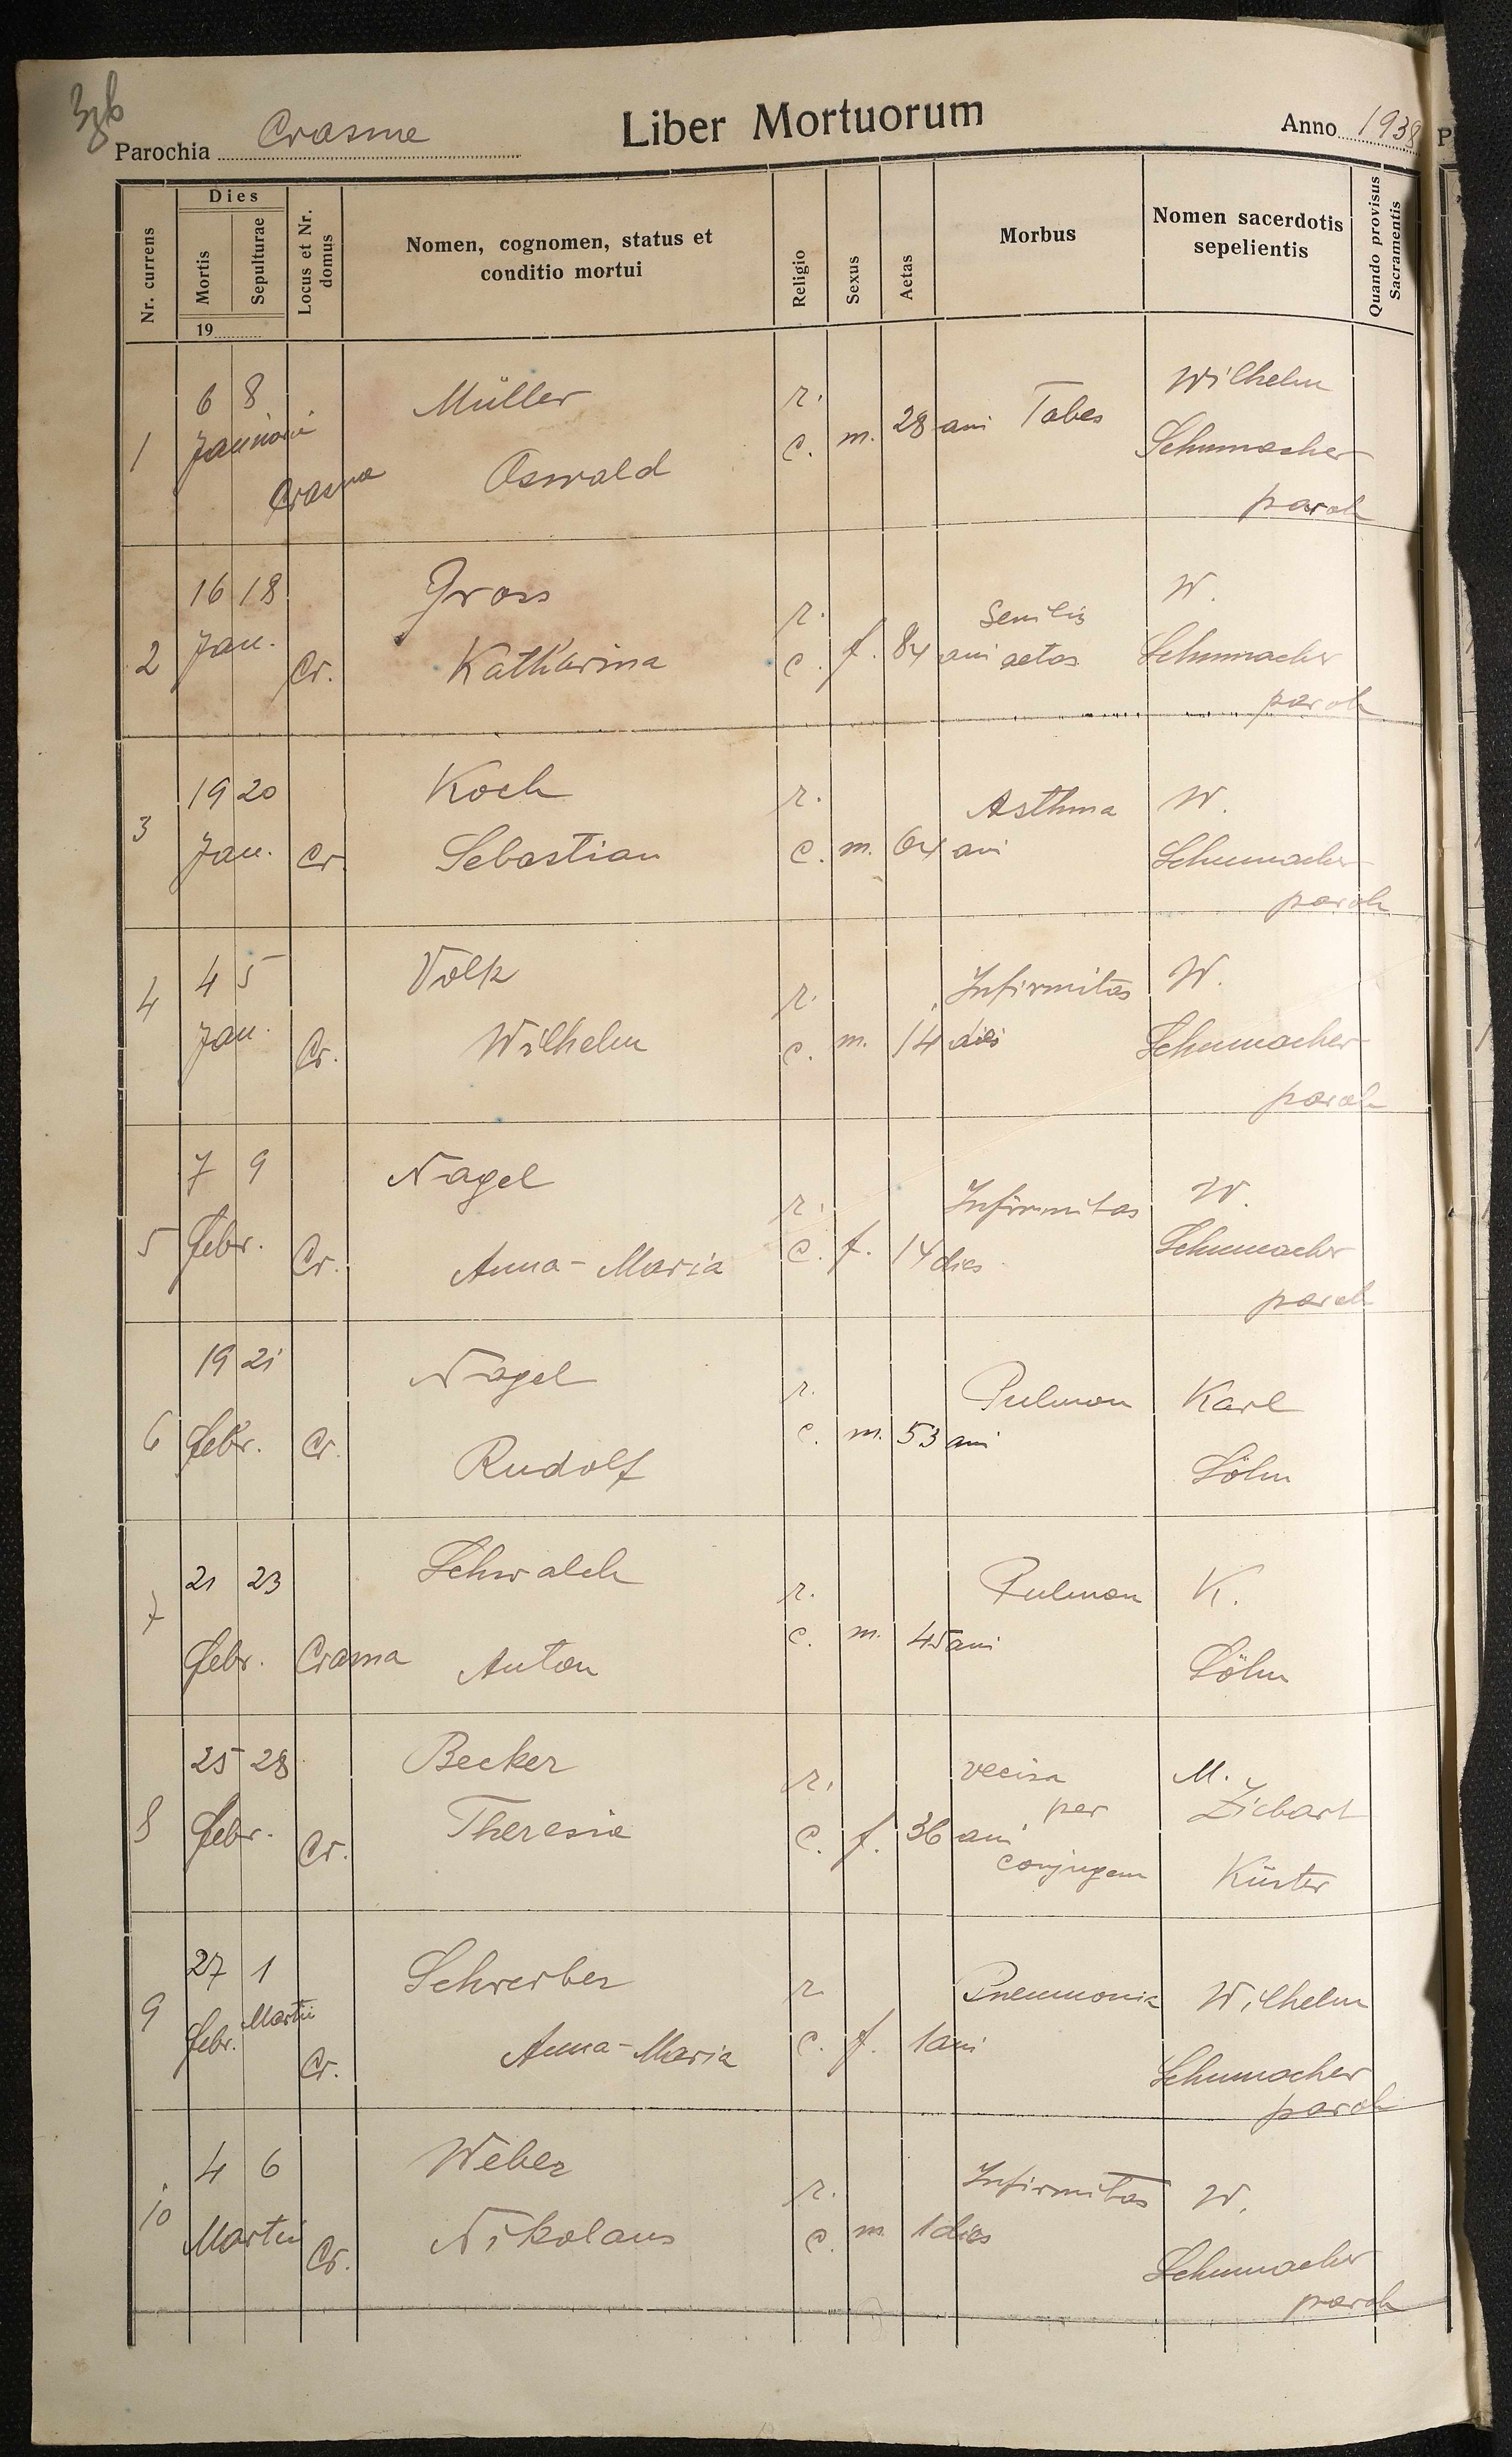 Parochia Crasna
Liber Mortuorum
Anno 1938
Nr. currens
Dies
Mortis
Sepulturae
19
Locus et Nr. domus
Nomen, cognomen, status et
conditio mortui
Religio
Sexus
Aetas
Morbus
Nomen sacerdotis
sepelientis
Quando provisus
Sacramentis
1 6 8 Januarii Crasna Müller Oswald r. c. m. 28 ani Tabes Wilhelm Schumacher paroh
2 16 18 Jan. Cr. Gross Katharina r. c. f. 84 ani Senilis aetas W. Schumacher paroh
3 19 20 Jan. Cr. Koch Sebastian r. c. m. 64 ani Asthma W. Schumacher paroh
4 4 5 Jan. Cr. Volk Wilhelm r. c. m. 14 dies Infirmitas W. Schumacher paroh
5 7 9 Febr. Cr. Nagel Anna-Maria r. c. f. 14 dies Infirmitas W. Schumacher paroh
6 19 21 Febr. Cr. Nagel Rudolf r. c. m. 53 ani Pulmon Karl Söhn
7 21 23 Febr. Crasna Schwalch Anton r. c. m. 45 ani Pulmon K. Söhn
8 25 28 Febr. Cr. Becker Theresia r. c. f. 36 ani per conjugem M. Zichart Küster
9 27 Febr. 1 Martii Cr. Schreiber Anna-Maria r. c. f. 1 ani Pneumonia Wilhelm Schumacher paroh
10 4 6 Martii Cr. Weber Nikolaus r. c. m 1 dies Infirmitas W. Schumacher paroh